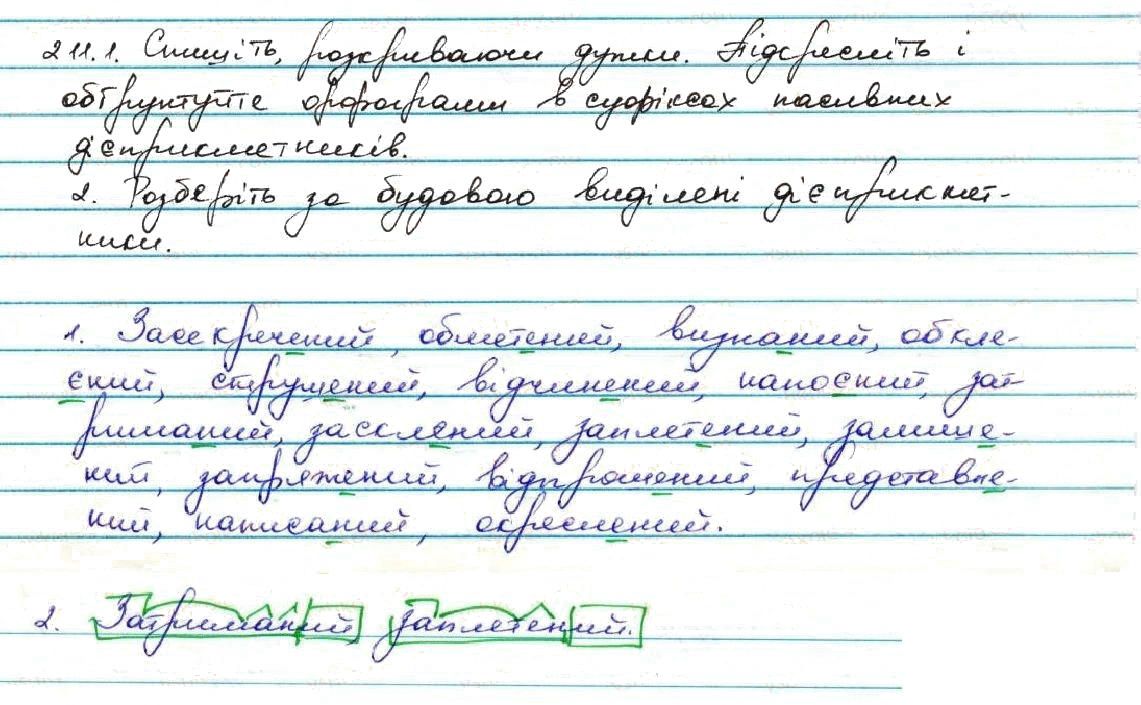 211.1. Спишіть, розкриваючи дужки. Підкресліть і
обґрунтуйте орфограми в суфіксах пасивних
дієприкметників.
2. Розберіть за будовою виділені дієприкмет-
ники.
1. Засекречений, обметений, визнаний, обкле-
єний, струшений, відчинений, напоєний, зат-
риманий, заселений, заплетений, замище-
ний, запряжений, відпрошений, представле-
ний, написаний, окреслений.
2. Затриманий, заплетений.